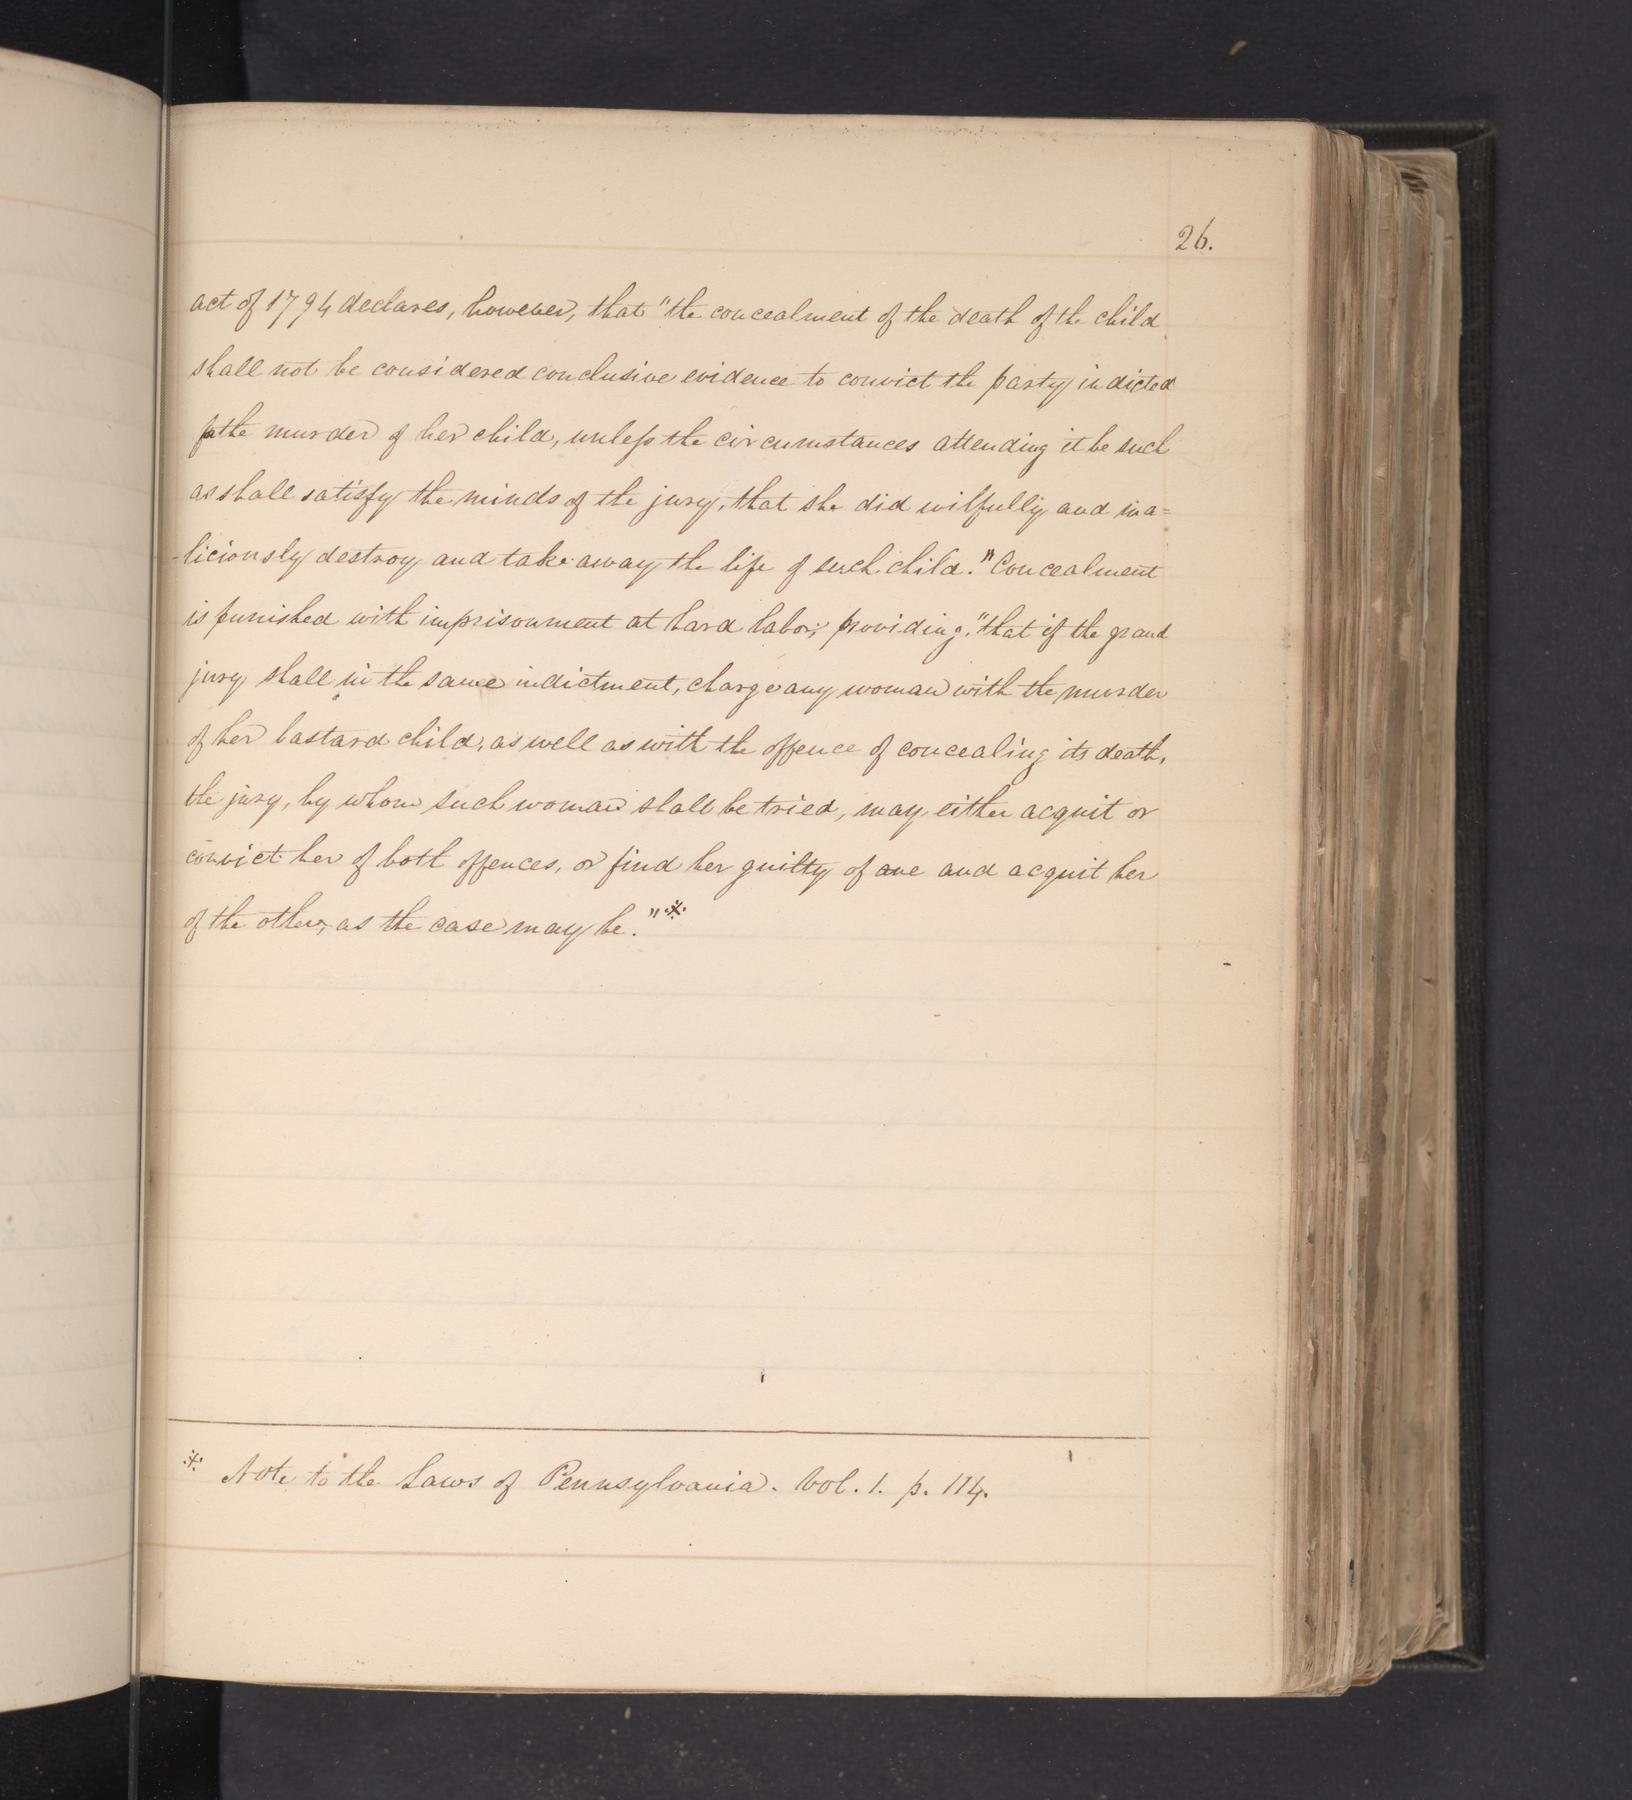 26.
act of 1794 declares, however, that "the concealment of the death of the child
shall not be considered conclusive evidence to convict the party indicted
for the murder of her child, unless the circumstances attending it be such
as shall satisfy the minds of the jury, that she did wilfully and ma=
-liciously destroy and take away the life of such child." Concealment
is punished with imprisonment at hard labor; providing, "that if the grand
jury shall in the same indictment, charge any woman with the murder
of her bastard child, as well as with the offence of concealing its death,
the jury, by whom such woman shall be tried, may either acquit or
convict her of both offences, or find her guilty of one and acquit her
of the other, as the case may be." *
* Note to the Laws of Pennsylvania. Vol. 1. p. 114.